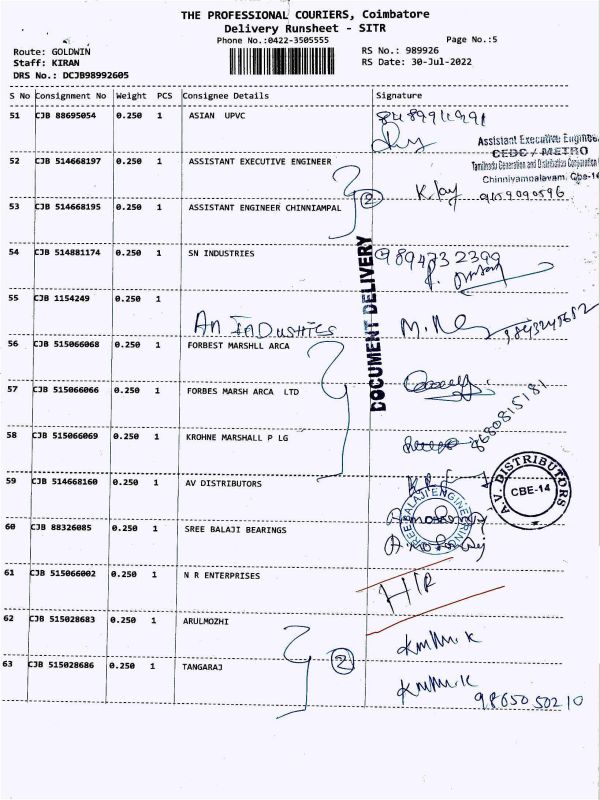 THE PROFESSIONAL COURIERS, Coimbatore
Delivery Runsheet - SITR
Phone No.:0422-3505555 Page No.:5
Route: GOLDWIN RS No.: 989926
Staff: KIRAN RS Date: 30-Jul-2022
DRS No.: DCJB98992605
S No Consignment No Weight PCS Consignee Details Signature
51 CJB 88695054 0.250 1 ASIAN UPVC
Assistant Executive Engineer
CEDC / METRO
Tamilnadu Generation and Distribution Corporation
Chinniyampalayam, Cbe-14
52 CJB 514668197 0.250 1 ASSISTANT EXECUTIVE ENGINEER
9159090596
2
53 CJB 514668195 0.250 1 ASSISTANT ENGINEER CHINNIAMPAL
54 CJB 514881174 0.250 1 SN INDUSTRIES 9894732399
DOCUMENT DELIVERY
55 CJB 1154249 0.250 1
An INDUSTRIES
56 CJB 515066068 0.250 1 FORBEST MARSHLL ARCA
57 CJB 515066066 0.250 1 FORBES MARSH ARCA LTD
8680815181
58 CJB 515066069 0.250 1 KROHNE MARSHALL P LG
59 CJB 514668160 0.250 1 AV DISTRIBUTORS
A.V. DISTRIBUTORS
CBE-14
SREE BALAJI ENGINEERING
60 CJB 88326085 0.250 1 SREE BALAJI BEARINGS
61 CJB 515066002 0.250 1 N R ENTERPRISES
62 CJB 515028683 0.250 1 ARULMOZHI
2
63 CJB 515028686 0.250 1 TANGARAJ
9865050210